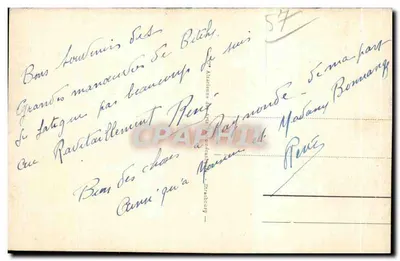 57
Bons souvenirs des
Grandes manoeuvres de Bitche
Se fatigue pas beaucoup Je suis
au Ravitaillement René
Bien des choses à Raymonde de ma part
Ainsi qu'à Monsieur et Madame Bonnange
René
CARTORUM
Strasbourg